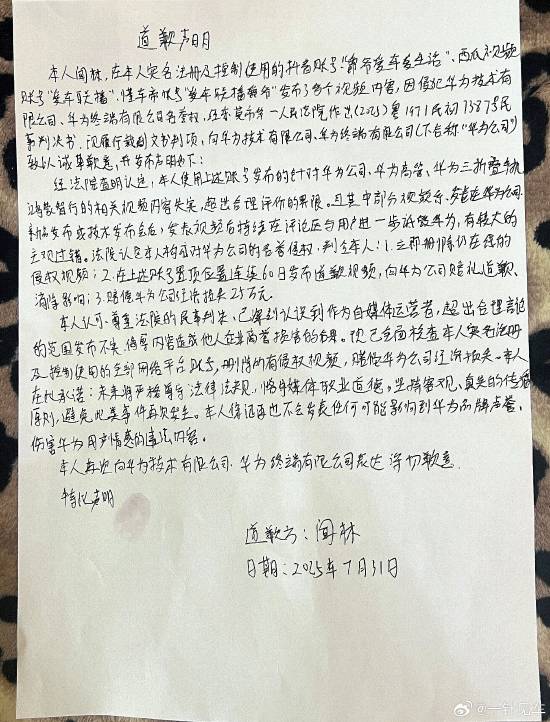 道歉声明
本人闻林,在本人实名注册及控制使用的抖音账号"希爷爱车爱生活"、西瓜视频
账号"爱车联播"、懂车帝账号"爱车联播 "发布了多个视频内容,因侵犯华为技术有
限公司、华为终端有限公司名誉权,经东莞市第一人民法院作出(2025)粤1971民初73875号民
事判决书,现履行裁判文书判项,向华为技术有限公司、华为终端有限公司(下合称"华为公司")
致以诚挚歉意,并发布声明如下:
经法院查明认定,本人使用上述账号发布的针对华为公司、华为高管、华为三折叠手机
智行的相关视频内容失实,超出合理评价的界限。且其中部分视频系 华为公司
新品发布或技术发布会后,发表视频后持续在评论区与用户进一步诋毁华为,有较大的
主观过错。法院认定本人构成对华为公司的名誉侵权,判令本人:1.立即删除仍在线的
侵权视频;2.在上述账号置顶位置连续60日发布道歉视频,向华为公司赔礼道歉、
消除影响;3.赔偿华为公司经济损失25万元。
本人认可、尊重法院的民事判决,已深刻认识到作为自媒体运营者,超出合理言论
的范围发布不实、侮辱内容造成他人企业商誉损害的后果。现已全面核查本人实名注册
及控制使用的全部网络平台账号,删除所有侵权视频,赔偿华为公司经济损失。本人
在此承诺:未来将严格遵守法律法规,恪守媒体职业道德,坚持客观、真实的传播
原则,避免此类事件再次发生。本人保证再也不会发表任何可能影响到华为品牌声誉、
伤害华为用户情感的违法内容。
本人再次向华为技术有限公司、华为终端有限公司表达深切歉意。
特此声明
道歉人:闻林
日期:2025年7月31日
@一针见车